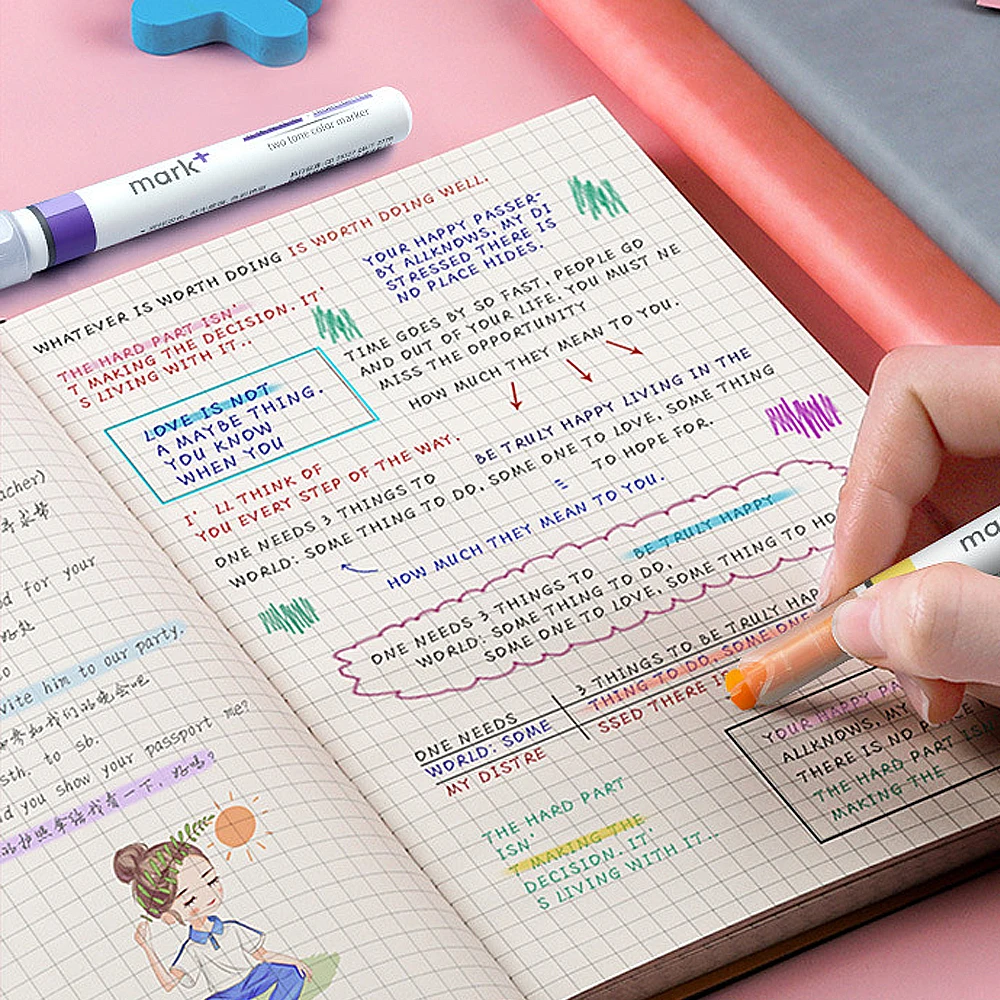 mark+
two tone color marker
WHATEVER IS WORTH DOING IS WORTH DOING WELL.
THE HARD PART ISN'
T MAKING THE DECISION. IT'
S LIVING WITH IT..
YOUR HAPPY PASSER-
BY ALLKNOWS, MY DI
STRESSED THERE IS
NO PLACE HIDES.
TIME GOES BY SO FAST, PEOPLE GO
AND OUT OF YOUR LIFE. YOU MUST NE
MISS THE OPPORTUNITY
HOW MUCH THEY MEAN TO YOU.
LOVE IS NOT
A MAYBE THING.
YOU KNOW
WHEN YOU
I' LL THINK OF
YOU EVERY STEP OF THE WAY.
BE TRULY HAPPY LIVING IN THE
ONE NEEDS 3 THINGS TO
WORLD: SOME THING TO DO, SOME ONE TO LOVE, SOME THING
TO HOPE FOR.
HOW MUCH THEY MEAN TO YOU.
BE TRULY HAPPY
ONE NEEDS 3 THINGS TO
WORLD: SOME THING TO DO,
SOME ONE TO LOVE, SOME THING TO HO
3 THINGS TO BE TRULY HAP
ONE NEEDS
THING TO DO, SOME ONE
WORLD: SOME
SSED THERE IS
MY DISTRE
YOUR HAPPY PA
ALLKNOWS, MY
THERE IS NO PLACE
THE HARD PART ISN
MAKING THE
THE HARD PART
ISN'
T MAKING THE
DECISION. IT'
S LIVING WITH IT...
acher)
d for your
vite him to our party.
sth. to sb.
d you show your passport me?
ma